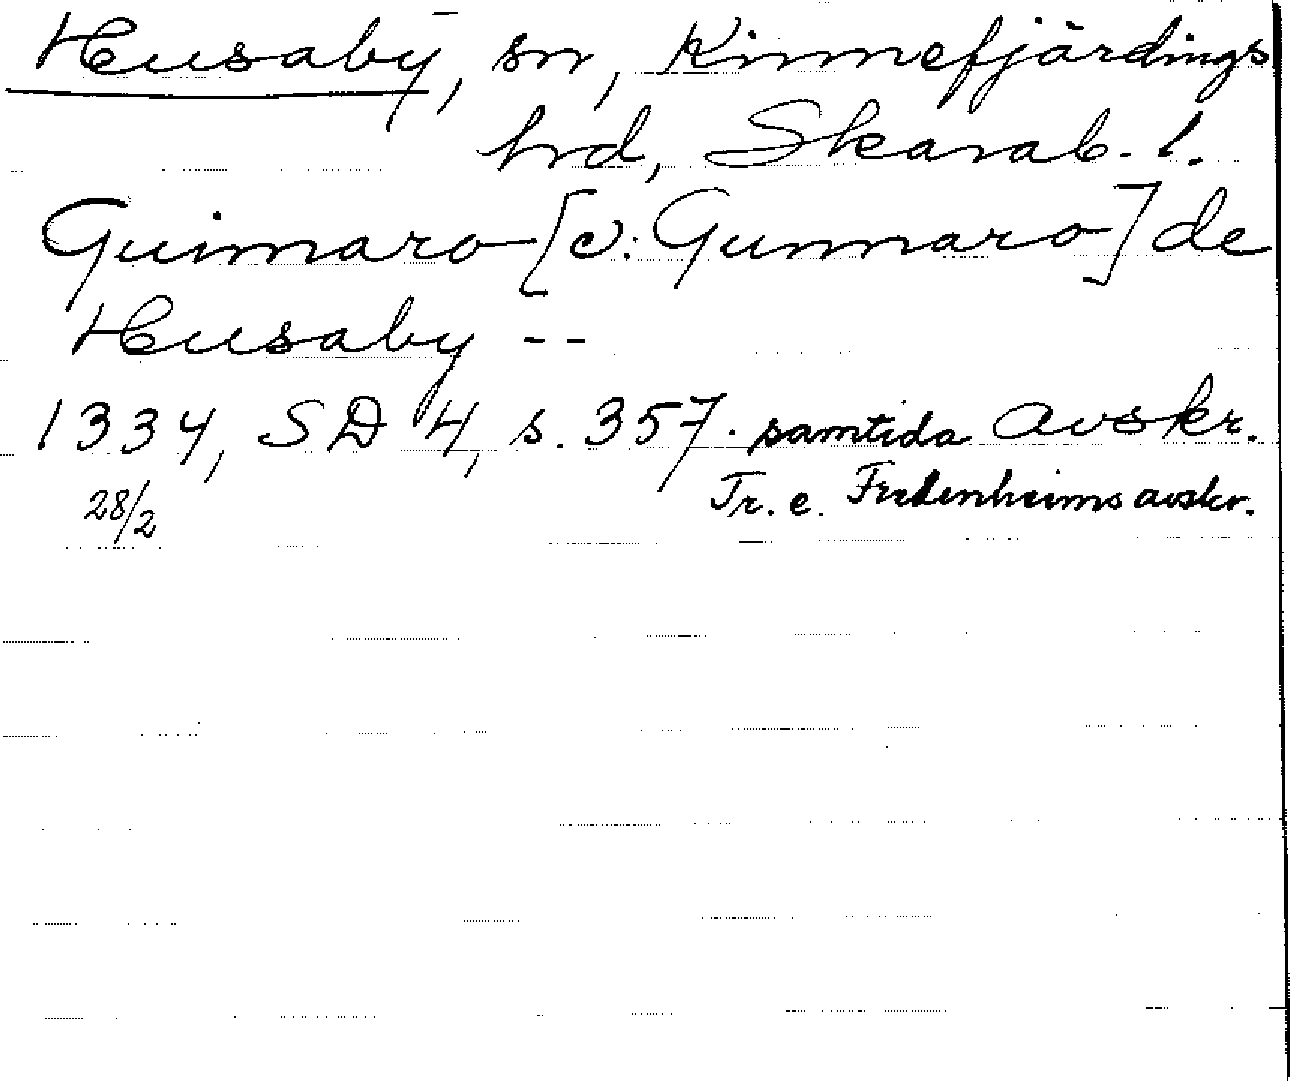 Husaby, sn, Kinnefjärdings
hrd, Skarab. l.
Guimaro [v. Gunnaro] de
Husaby --
1334, SD 4, s. 357. samtida avskr.
28/2 Tr. e. Fredenheims avskr.